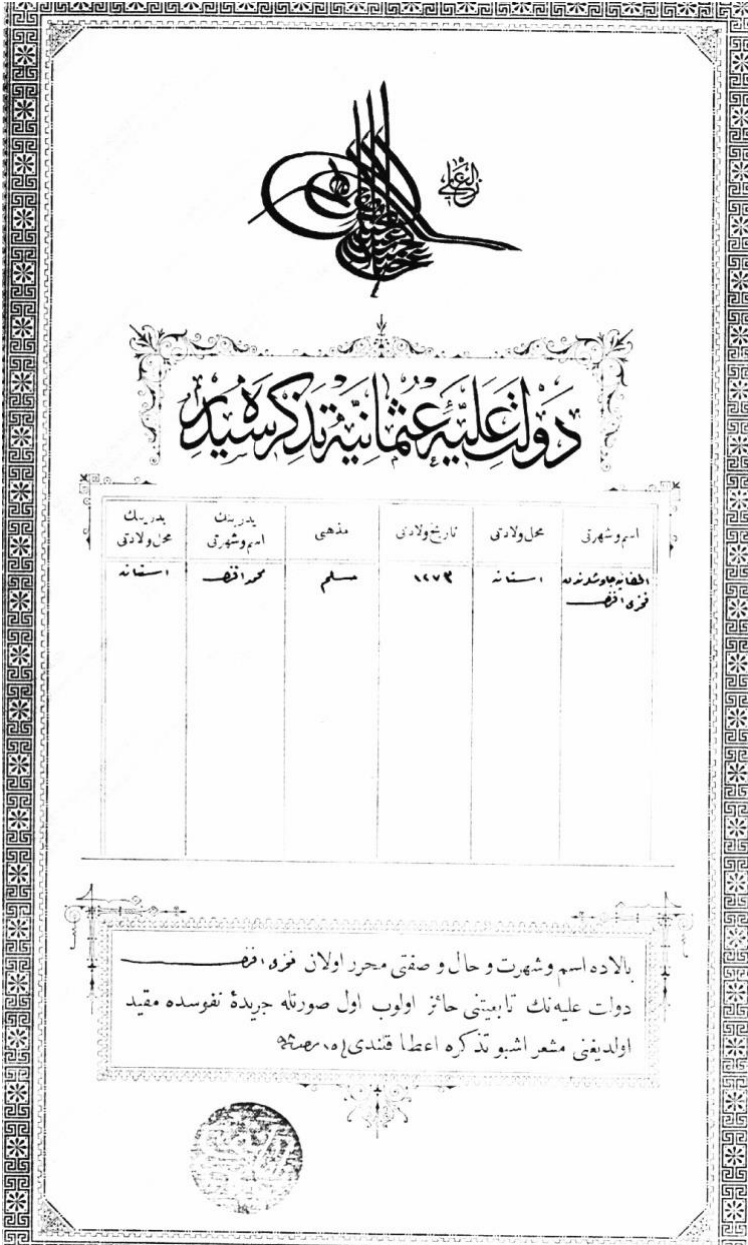 دولت علیهٔ عثمانیه تذکره سیدر
اسم و شهرتی
محل ولادتی
تاریخ ولادتی
مذهبی
پدرینك اسم و شهرتی
پدرینك محل ولادتی
فخری افندی
استانه
١٢٧٣
مسلم
محمد افندی
استانه
بالاده اسم و شهرت و حال و صفتی محرر اولان فخری افندی
دولت علیه نك تابعیتنی حائز اولوب اول صورتله جریدهٔ نفوسده مقید
اولدیغنی مشعر اشبو تذکره اعطا قلندی